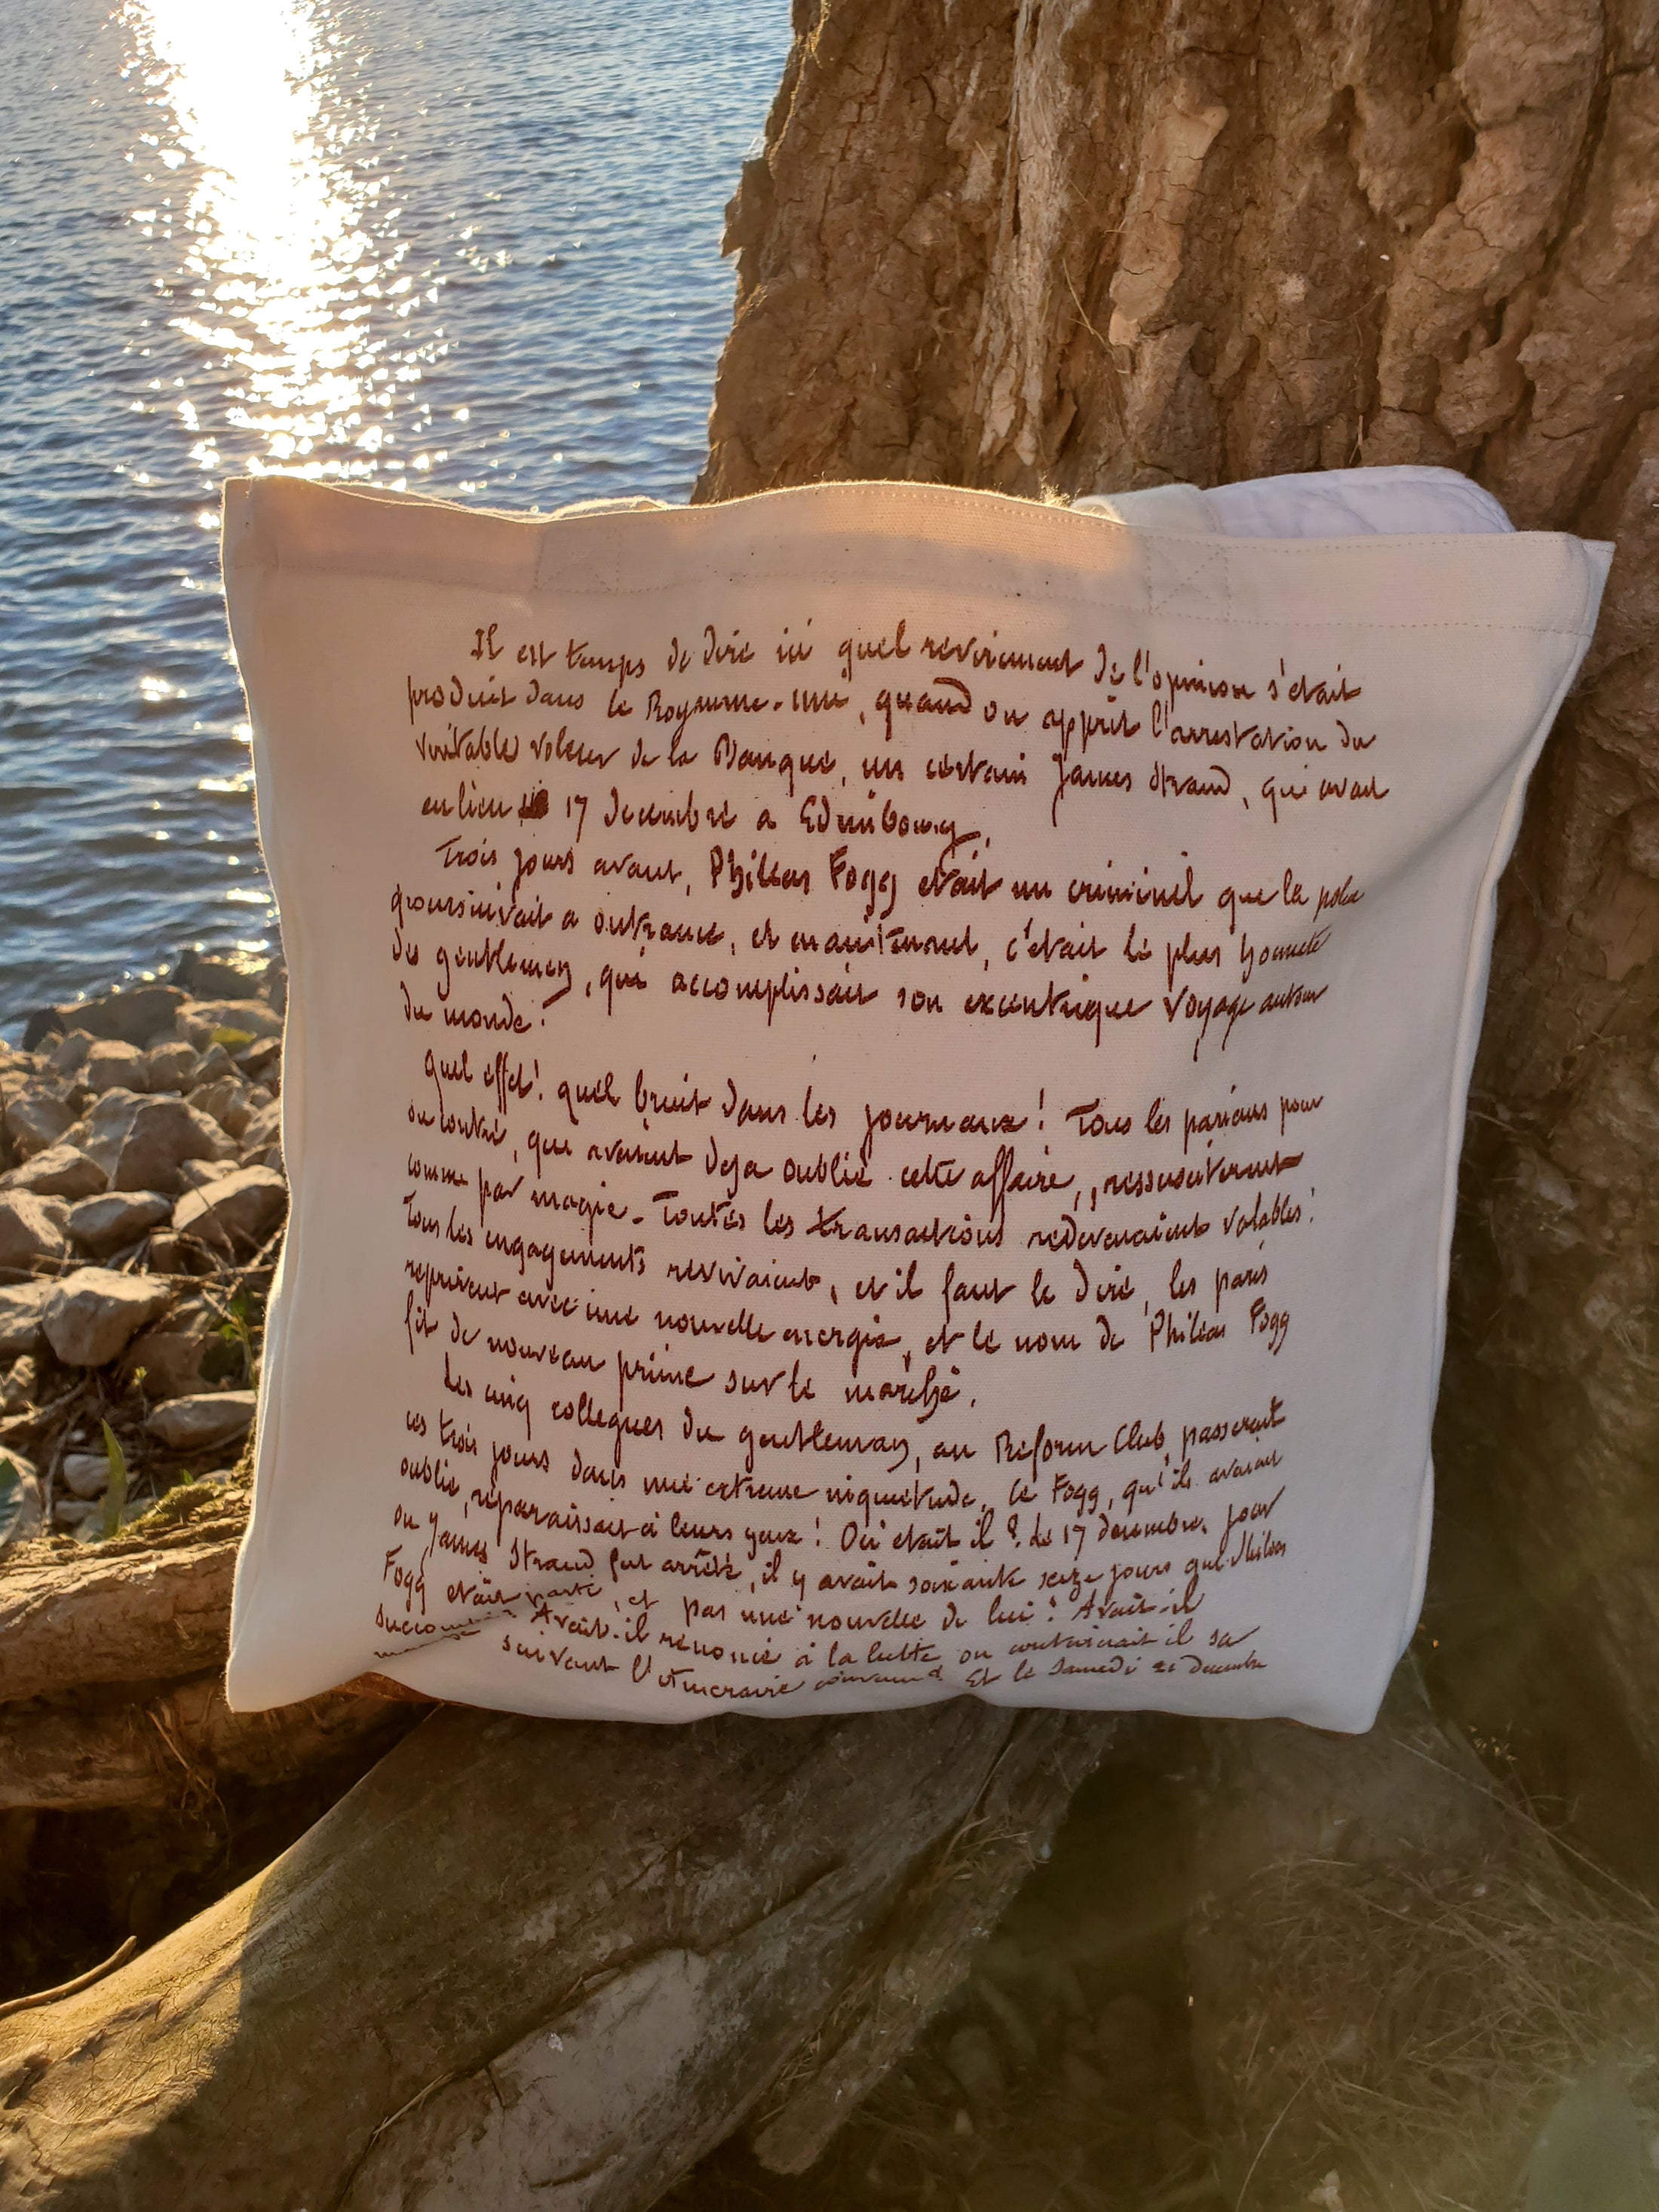 Il est temps de dire ici quel revirement de l'opinion s'etait
produit dans le Royaume-uni, quand on apprit l'arrestation du
veritable voleur de la Banque, un certain James Strand, qui avait
eu lieu le 17 decembre a Edimbourg.
Trois jours avant, Phileas Fogg etait un criminel que la police
poursuivait a outrance, et maintenant, c'etait le plus honnete
des gentlemen, qui accomplissait son excentrique voyage autour
du monde!
Quel effet! quel bruit dans les journaux! Tous les parieurs pour
ou contre, qui avaient deja oublié cette affaire, ressusciterent
comme par magie. Toutes les transactions redevenaient valables!
Tous les engagements revivaient, et il faut le dire, les paris
reprirent avec une nouvelle energie, et le nom de Phileas Fogg
fit de nouveau prime sur le marché.
Les cinq collegues du gentleman, au Reform Club, passerent
ces trois jours dans une extreme inquietude. Ce Fogg, qu'ils avaient
oublié, reparaissait à leurs yeux! Où etait il? Le 17 decembre, jour
ou James Strand fut arrêté, il y avait soixante seize jours que Phileas
Fogg etait parti, et pas une nouvelle de lui! Avait-il
succombé Avait-il renoncé à la lutte ou continuait il sa
marche suivant l'itineraire convenu? Et le Samedi 21 decembre